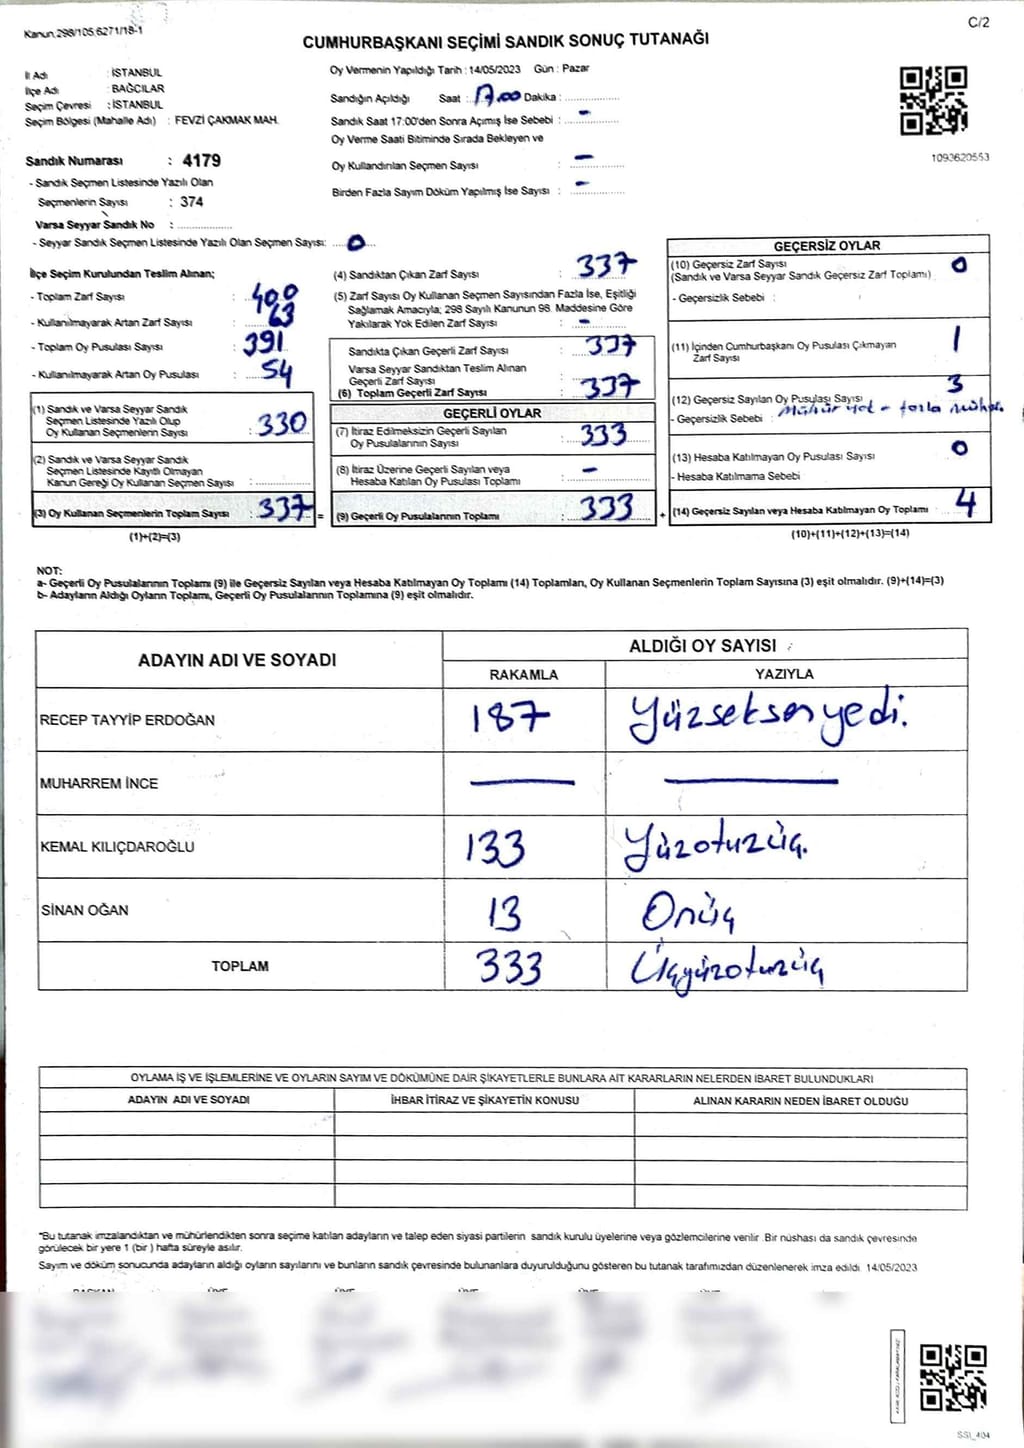 Kanun.298/105,6271/18-1
C/2
CUMHURBAŞKANI SEÇİMİ SANDIK SONUÇ TUTANAĞI
İl Adı : İSTANBUL
İlçe Adı : BAĞCILAR
Seçim Çevresi : İSTANBUL
Seçim Bölgesi (Mahalle Adı) : FEVZİ ÇAKMAK MAH.
Sandık Numarası : 4179
- Sandık Seçmen Listesinde Yazılı Olan
Seçmenlerin Sayısı : 374
Varsa Seyyar Sandık No : ..................
- Seyyar Sandık Seçmen Listesinde Yazılı Olan Seçmen Sayısı: 0
Oy Vermenin Yapıldığı Tarih : 14/05/2023 Gün : Pazar
Sandığın Açıldığı Saat : 17.00 Dakika : ..................
Sandık Saat 17:00'den Sonra Açımış İse Sebebi : -
Oy Verme Saati Bitiminde Sırada Bekleyen ve
Oy Kullandırılan Seçmen Sayısı : -
Birden Fazla Sayım Döküm Yapılmış İse Sayısı : -
1093620553
İlçe Seçim Kurulundan Teslim Alınan;
- Toplam Zarf Sayısı : 400
- Kullanılmayarak Artan Zarf Sayısı : 63
- Toplam Oy Pusulası Sayısı : 391
- Kullanılmayarak Artan Oy Pusulası : 54
(1) Sandık ve Varsa Seyyar Sandık
Seçmen Listesinde Yazılı Olup
Oy Kullanan Seçmenlerin Sayısı : 330
(2) Sandık ve Varsa Seyyar Sandık
Seçmen Listesinde Kayıtlı Olmayan
Kanun Gereği Oy Kullanan Seçmen Sayısı : ..................
(3) Oy Kullanan Seçmenlerin Toplam Sayısı : 337 =
(1)+(2)=(3)
(4) Sandıktan Çıkan Zarf Sayısı : 337
(5) Zarf Sayısı Oy Kullanan Seçmen Sayısından Fazla İse, Eşitliği
Sağlamak Amacıyla; 298 Sayılı Kanunun 98. Maddesine Göre
Yakılarak Yok Edilen Zarf Sayısı : -
Sandıkta Çıkan Geçerli Zarf Sayısı : 337
Varsa Seyyar Sandıktan Teslim Alınan
Geçerli Zarf Sayısı
(6) Toplam Geçerli Zarf Sayısı : 337
GEÇERLİ OYLAR
(7) İtiraz Edilmeksizin Geçerli Sayılan
Oy Pusulalarının Sayısı : 333
(8) İtiraz Üzerine Geçerli Sayılan veya
Hesaba Katılan Oy Pusulası Toplamı : -
(9) Geçerli Oy Pusulalarının Toplamı : 333 +
GEÇERSİZ OYLAR
(10) Geçersiz Zarf Sayısı 0
(Sandık ve Varsa Seyyar Sandık Geçersiz Zarf Toplamı)
- Geçersizlik Sebebi :
(11) İçinden Cumhurbaşkanı Oy Pusulası Çıkmayan 1
Zarf Sayısı
(12) Geçersiz Sayılan Oy Pusulası Sayısı 3
- Geçersizlik Sebebi : Mühür yok - fazla mühür.
(13) Hesaba Katılmayan Oy Pusulası Sayısı 0
- Hesaba Katılmama Sebebi
(14) Geçersiz Sayılan veya Hesaba Katılmayan Oy Toplamı 4
(10)+(11)+(12)+(13)=(14)
NOT:
a- Geçerli Oy Pusulalarının Toplamı (9) ile Geçersiz Sayılan veya Hesaba Katılmayan Oy Toplamı (14) Toplamları, Oy Kullanan Seçmenlerin Toplam Sayısına (3) eşit olmalıdır. (9)+(14)=(3)
b- Adayların Aldığı Oyların Toplamı, Geçerli Oy Pusulalarının Toplamına (9) eşit olmalıdır.
ADAYIN ADI VE SOYADI
ALDIĞI OY SAYISI
RAKAMLA YAZIYLA
RECEP TAYYİP ERDOĞAN 187 Yüzseksenyedi.
MUHARREM İNCE — —
KEMAL KILIÇDAROĞLU 133 Yüzotuzüç.
SİNAN OĞAN 13 Onüç
TOPLAM 333 Üçyüzotuzüç
OYLAMA İŞ VE İŞLEMLERİNE VE OYLARIN SAYIM VE DÖKÜMÜNE DAİR ŞİKAYETLERLE BUNLARA AİT KARARLARIN NELERDEN İBARET BULUNDUKLARI
ADAYIN ADI VE SOYADI İHBAR İTİRAZ VE ŞİKAYETİN KONUSU ALINAN KARARIN NEDEN İBARET OLDUĞU
*Bu tutanak imzalandıktan ve mühürlendikten sonra seçime katılan adayların ve talep eden siyasi partilerin sandık kurulu üyelerine veya gözlemcilerine verilir. Bir nüshası da sandık çevresinde
görülecek bir yere 1 (bir ) hafta süreyle asılır.
Sayım ve döküm sonucunda adayların aldığı oyların sayılarını ve bunların sandık çevresinde bulunanlara duyurulduğunu gösteren bu tutanak tarafımızdan düzenlenerek imza edildi. 14/05/2023
SSI_404